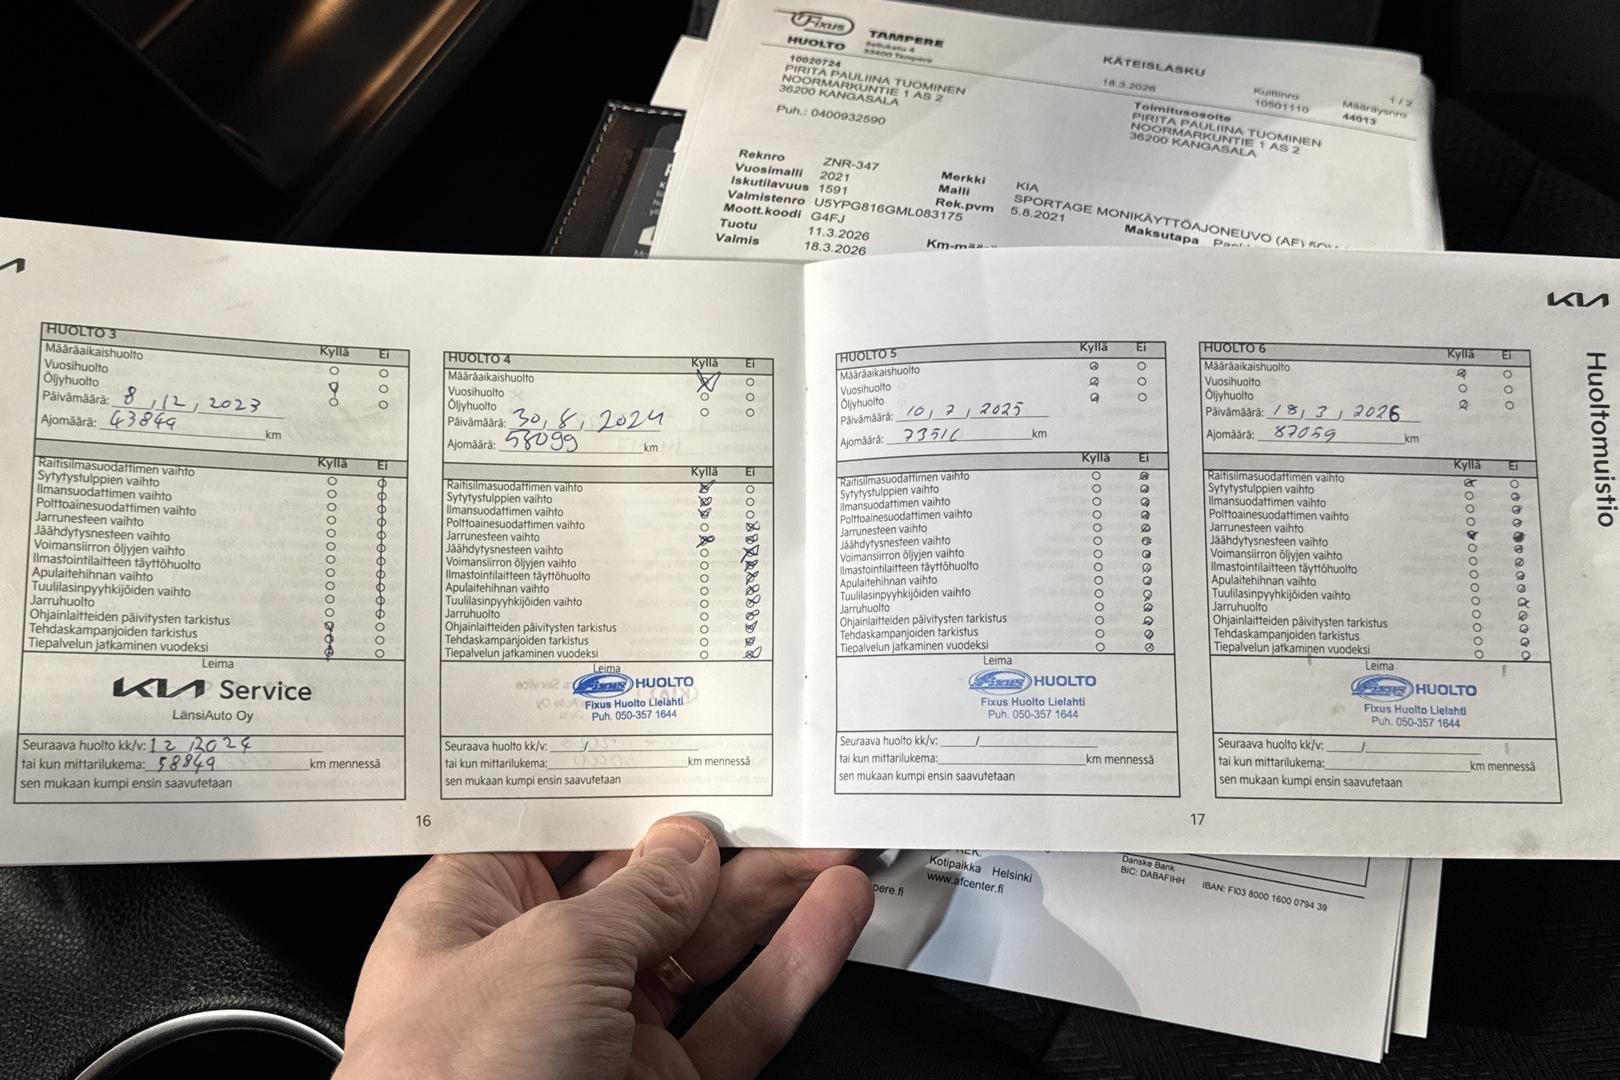 Fixus
HUOLTO
TAMPERE
Sellukatu 4
33400 Tampere
KÄTEISLASKU
10020724
PIRITA PAULIINA TUOMINEN
NOORMARKUNTIE 1 AS 2
36200 KANGASALA
Puh.: 0400932590
18.3.2026
Kuittinro
10501110
1 / 2
Määräysnro
44013
Toimitusosoite
PIRITA PAULIINA TUOMINEN
NOORMARKUNTIE 1 AS 2
36200 KANGASALA
Reknro ZNR-347
Vuosimalli 2021 Merkki KIA
Iskutilavuus 1591 Malli SPORTAGE MONIKÄYTTÖAJONEUVO (AF) 5OV
Valmistenro U5YPG816GML083175 Rek.pvm 5.8.2021
Moott.koodi G4FJ Maksutapa
Tuotu 11.3.2026
Valmis 18.3.2026
KIA
Huoltomuistio
HUOLTO 3
Kyllä Ei
Määräaikaishuolto
Vuosihuolto
Öljyhuolto
Päivämäärä: 8, 12, 2023
Ajomäärä: 43849 km
Kyllä Ei
Raitisilmasuodattimen vaihto
Sytytystulppien vaihto
Ilmansuodattimen vaihto
Polttoainesuodattimen vaihto
Jarrunesteen vaihto
Jäähdytysnesteen vaihto
Voimansiirron öljyjen vaihto
Ilmastointilaitteen täyttöhuolto
Apulaitehihnan vaihto
Tuulilasinpyyhkijöiden vaihto
Jarruhuolto
Ohjainlaitteiden päivitysten tarkistus
Tehdaskampanjoiden tarkistus
Tiepalvelun jatkaminen vuodeksi
Leima
KIA Service
LänsiAuto Oy
Seuraava huolto kk/v: 12 /2024
tai kun mittarilukema: 58849 km mennessä
sen mukaan kumpi ensin saavutetaan
HUOLTO 4
Kyllä Ei
Määräaikaishuolto
Vuosihuolto
Öljyhuolto
Päivämäärä: 30, 8, 2024
Ajomäärä: 58099 km
Kyllä Ei
Raitisilmasuodattimen vaihto
Sytytystulppien vaihto
Ilmansuodattimen vaihto
Polttoainesuodattimen vaihto
Jarrunesteen vaihto
Jäähdytysnesteen vaihto
Voimansiirron öljyjen vaihto
Ilmastointilaitteen täyttöhuolto
Apulaitehihnan vaihto
Tuulilasinpyyhkijöiden vaihto
Jarruhuolto
Ohjainlaitteiden päivitysten tarkistus
Tehdaskampanjoiden tarkistus
Tiepalvelun jatkaminen vuodeksi
Leima
Fixus HUOLTO
Fixus Huolto Lielahti
Puh. 050-357 1644
Seuraava huolto kk/v: /
tai kun mittarilukema: km mennessä
sen mukaan kumpi ensin saavutetaan
16
HUOLTO 5
Kyllä Ei
Määräaikaishuolto
Vuosihuolto
Öljyhuolto
Päivämäärä: 10, 7, 2025
Ajomäärä: 73516 km
Kyllä Ei
Raitisilmasuodattimen vaihto
Sytytystulppien vaihto
Ilmansuodattimen vaihto
Polttoainesuodattimen vaihto
Jarrunesteen vaihto
Jäähdytysnesteen vaihto
Voimansiirron öljyjen vaihto
Ilmastointilaitteen täyttöhuolto
Apulaitehihnan vaihto
Tuulilasinpyyhkijöiden vaihto
Jarruhuolto
Ohjainlaitteiden päivitysten tarkistus
Tehdaskampanjoiden tarkistus
Tiepalvelun jatkaminen vuodeksi
Leima
Fixus HUOLTO
Fixus Huolto Lielahti
Puh. 050-357 1644
Seuraava huolto kk/v: /
tai kun mittarilukema: km mennessä
sen mukaan kumpi ensin saavutetaan
HUOLTO 6
Kyllä Ei
Määräaikaishuolto
Vuosihuolto
Öljyhuolto
Päivämäärä: 18, 3, 2026
Ajomäärä: 87059 km
Kyllä Ei
Raitisilmasuodattimen vaihto
Sytytystulppien vaihto
Ilmansuodattimen vaihto
Polttoainesuodattimen vaihto
Jarrunesteen vaihto
Jäähdytysnesteen vaihto
Voimansiirron öljyjen vaihto
Ilmastointilaitteen täyttöhuolto
Apulaitehihnan vaihto
Tuulilasinpyyhkijöiden vaihto
Jarruhuolto
Ohjainlaitteiden päivitysten tarkistus
Tehdaskampanjoiden tarkistus
Tiepalvelun jatkaminen vuodeksi
Leima
Fixus HUOLTO
Fixus Huolto Lielahti
Puh. 050-357 1644
Seuraava huolto kk/v: /
tai kun mittarilukema: km mennessä
sen mukaan kumpi ensin saavutetaan
17
pere.fi
Kotipaikka Helsinki
www.afcenter.fi
Danske Bank
BIC: DABAFIHH IBAN: FI03 8000 1600 0794 39